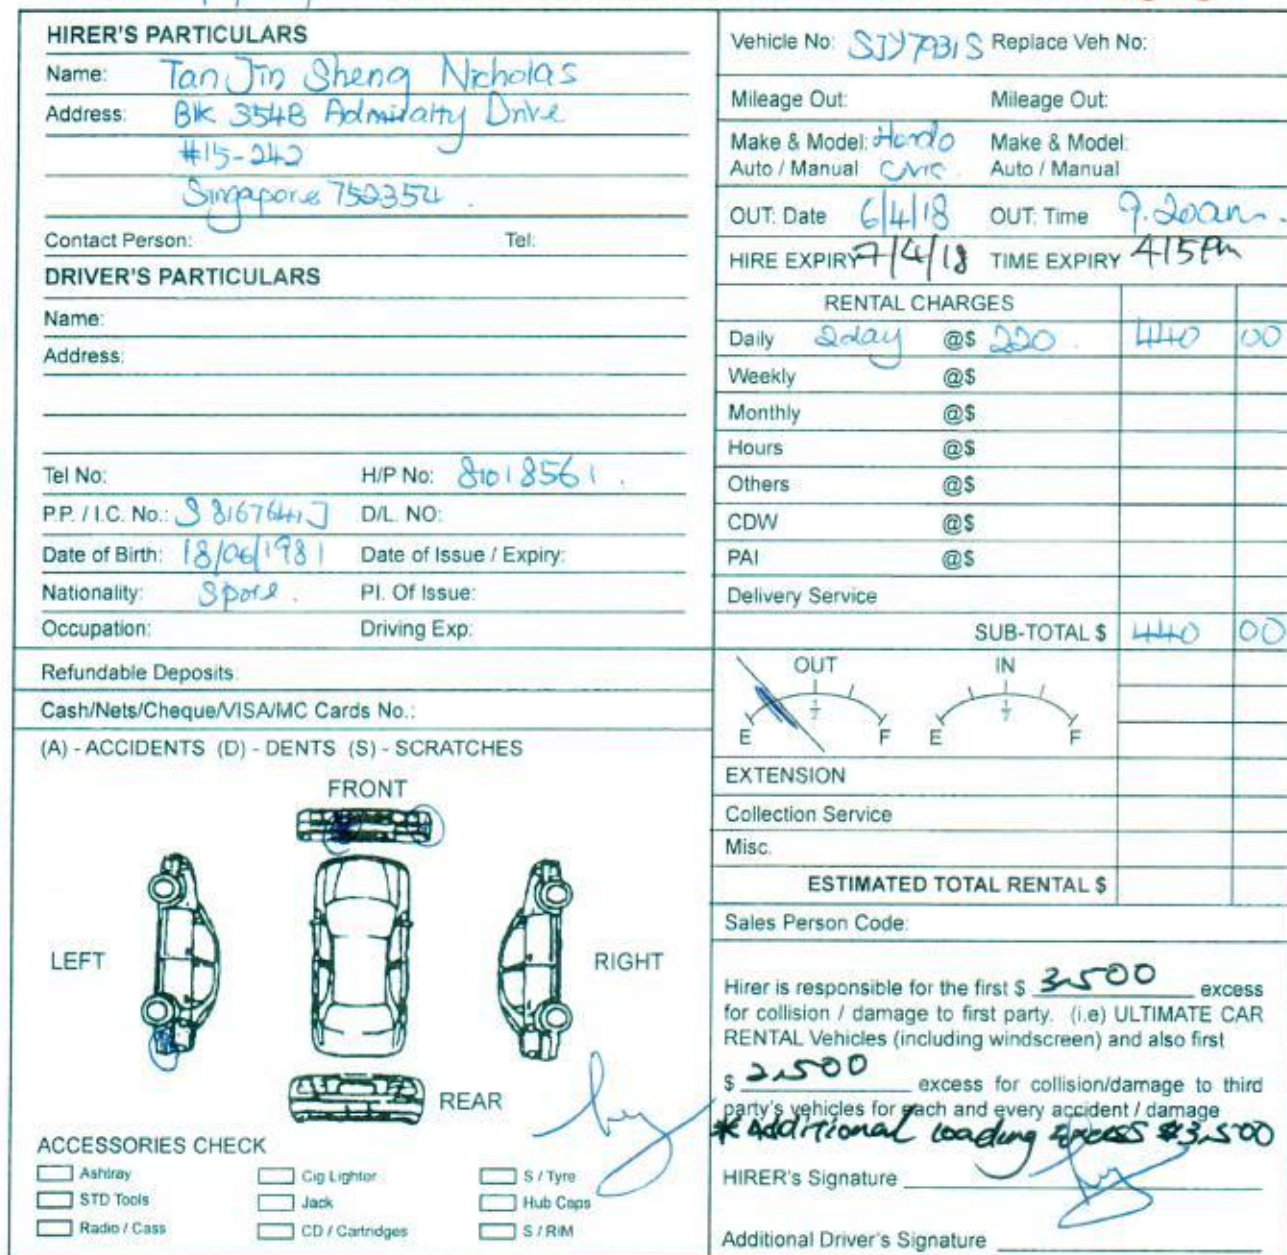 HIRER'S PARTICULARS
Name: Tan Jin Sheng Nicholas
Address: Blk 354B Admiralty Drive
#15-242
Singapore 752354.
Contact Person: Tel:
DRIVER'S PARTICULARS
Name:
Address:
Tel No: H/P No: 81018561.
P.P. / I.C. No.: S8167641J D/L. NO:
Date of Birth: 18/06/1981 Date of Issue / Expiry:
Nationality: Spore. Pl. Of Issue:
Occupation: Driving Exp:
Refundable Deposits:
Cash/Nets/Cheque/VISA/MC Cards No.:
(A) - ACCIDENTS (D) - DENTS (S) - SCRATCHES
FRONT
LEFT
RIGHT
REAR
ACCESSORIES CHECK
Ashtray Cig Lighter S / Tyre
STD Tools Jack Hub Caps
Radio / Cass CD / Cartridges S / RIM
Vehicle No: SJY7931S Replace Veh No:
Mileage Out: Mileage Out:
Make & Model: Honda Make & Model:
Auto / Manual Civic. Auto / Manual
OUT: Date 6/4/18 OUT: Time 9.20am.
HIRE EXPIRY 7/4/18 TIME EXPIRY 415Pm
RENTAL CHARGES
Daily 2day @$ 220. 440 00
Weekly @$
Monthly @$
Hours @$
Others @$
CDW @$
PAI @$
Delivery Service
SUB-TOTAL $ 440 00
OUT IN
1/2 1/2
E F E F
EXTENSION
Collection Service
Misc.
ESTIMATED TOTAL RENTAL $
Sales Person Code:
Hirer is responsible for the first $ 3,500 excess
for collision / damage to first party. (i.e) ULTIMATE CAR
RENTAL Vehicles (including windscreen) and also first
$ 2,500 excess for collision/damage to third
party's vehicles for each and every accident / damage
* Additional loading Excess $3,500
HIRER's Signature
Additional Driver's Signature